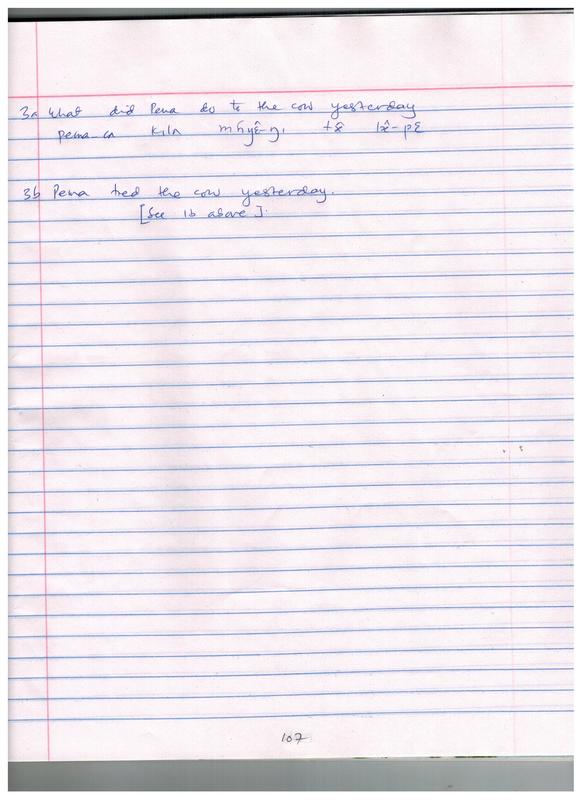 3a What did Pema do to the cow yesterday
pema-ca kila mhyɛ̂-ŋi
3b Pema tied the cow yesterday.
[See 1b above].
107